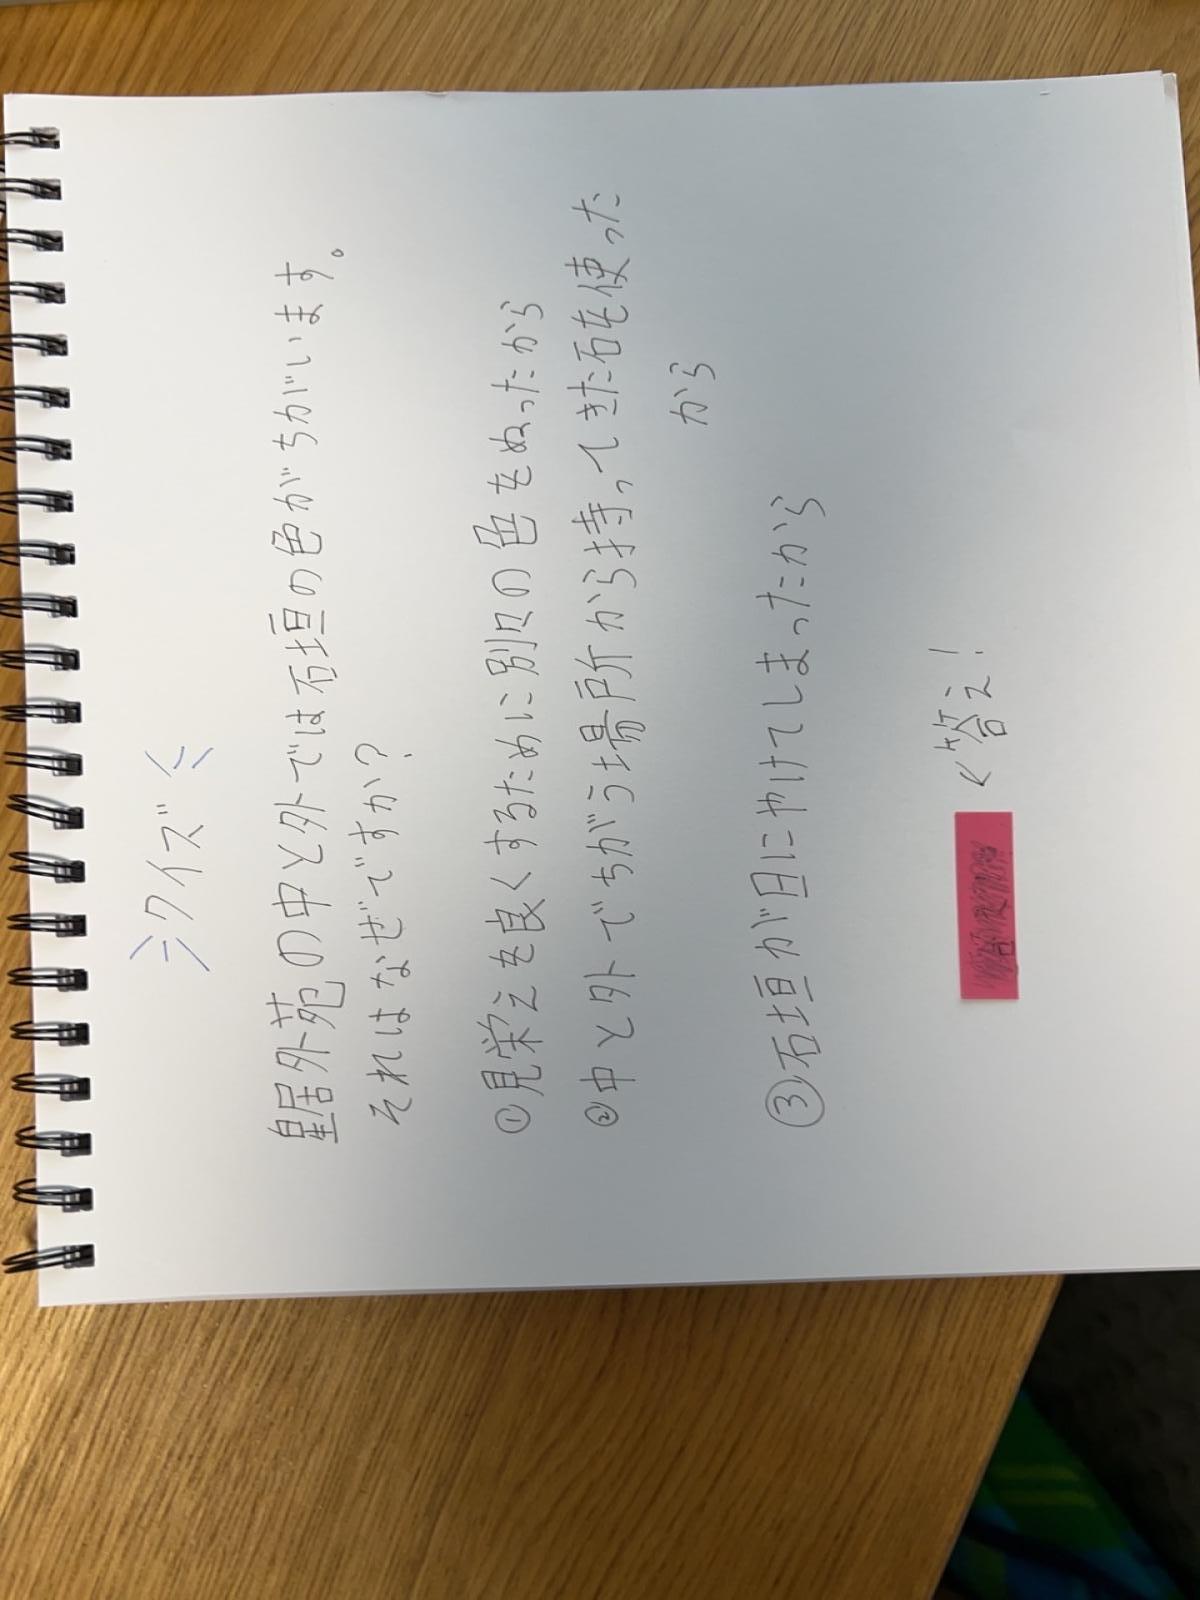 クイズ
皇居外苑の中と外では石垣の色がちがいます。
それはなぜですか?
①見栄えを良くするために別々の色をぬったから
②中と外でちがう場所から持ってきた石を使った
から
③石垣が日にやけてしまったから
<答え!